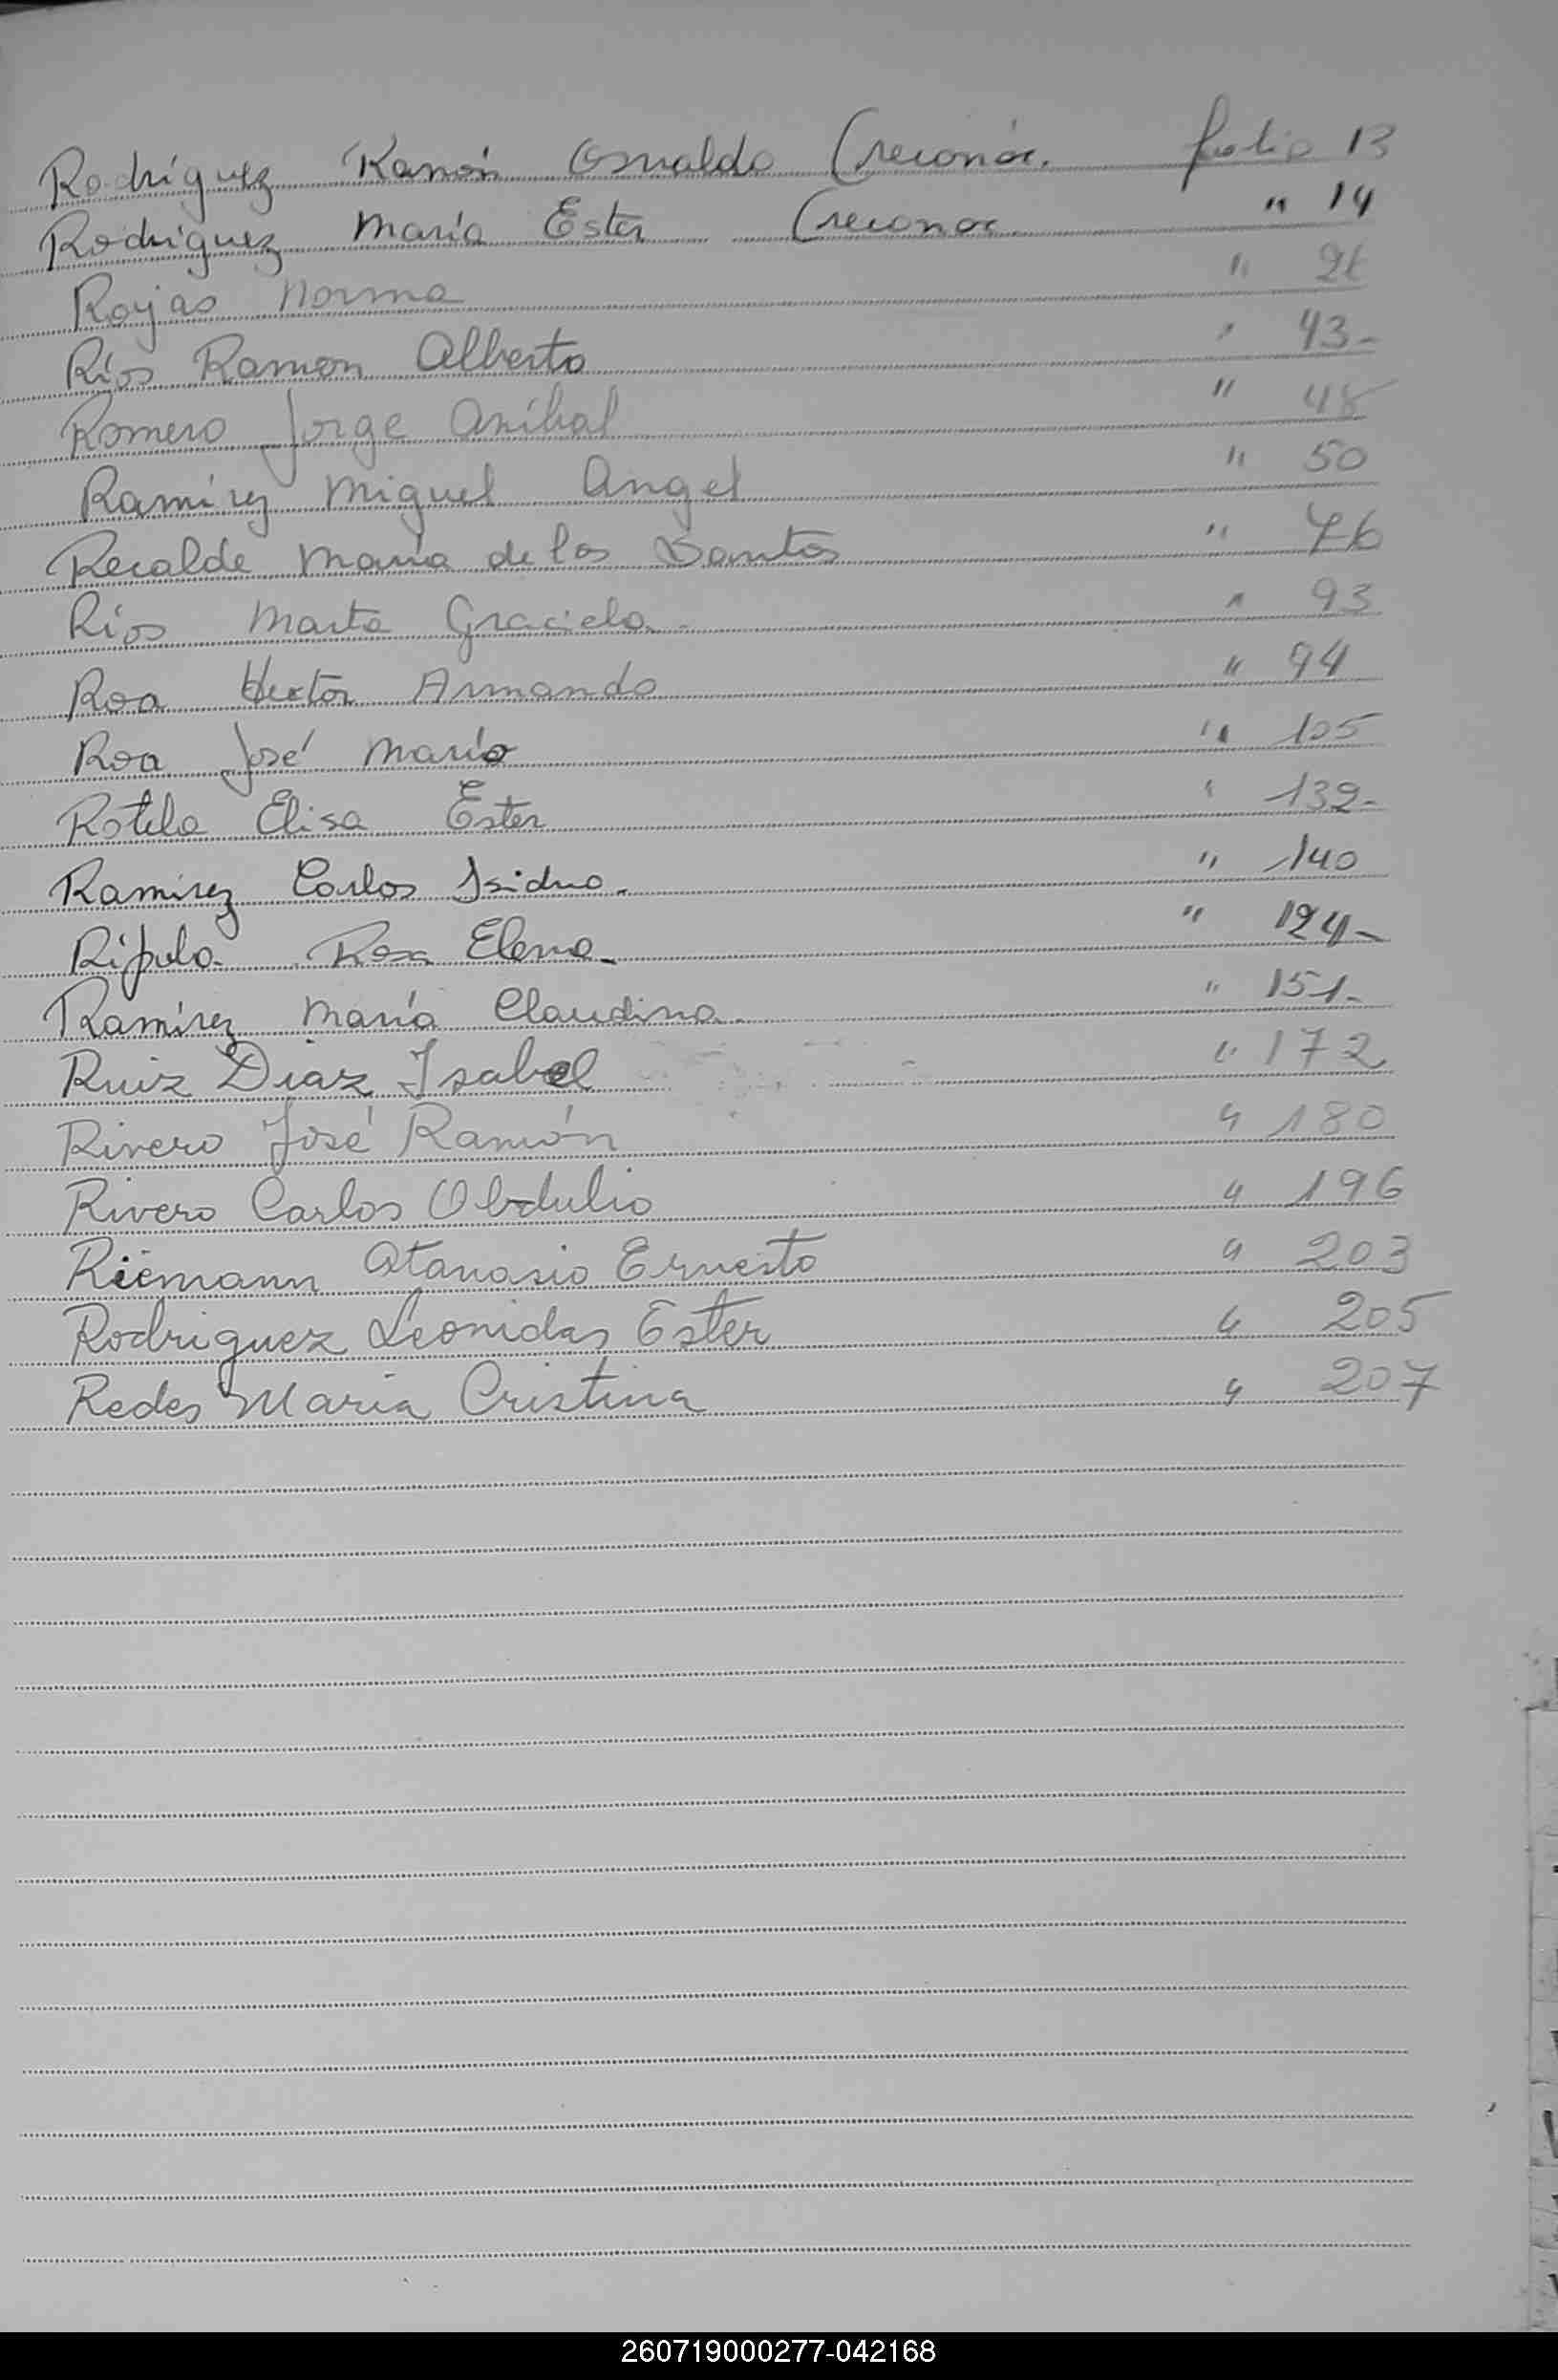 Rodríguez Ramón Osvaldo (reconóc. folio 13
Rodríguez María Ester (reconoc. " 14
Rojas Norma "
Ríos Ramon Alberto " 43-
Romero Jorge Aníbal " 48
Ramírez Miguel Angel " 50
Recalde María de los Santos " 76
Ríos Marta Graciela. " 93
Roa Hector Armando " 94
Roa José María " 105
Rotela Elisa Ester " 139-
Ramírez Carlos Isidro. " 140
Rosa Elena. " 124-
Ramírez María Claudina. " 151-
Ruiz Diaz Isabel " 172
Rivero José Ramón " 180
Rivero Carlos Obdulio " 196
Riemann Atanasio Ernesto " 203
Rodriguez Leonidas Ester " 205
Redes Maria Cristina " 207
260719000277-042168